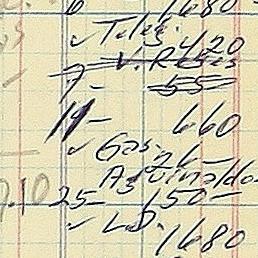 6 1680
✓ Teleg.
420
7- V. Reyes
55
14- 660
✓ Gas. 26-
Aguinaldo
25- 150-
✓ L.D.
1680